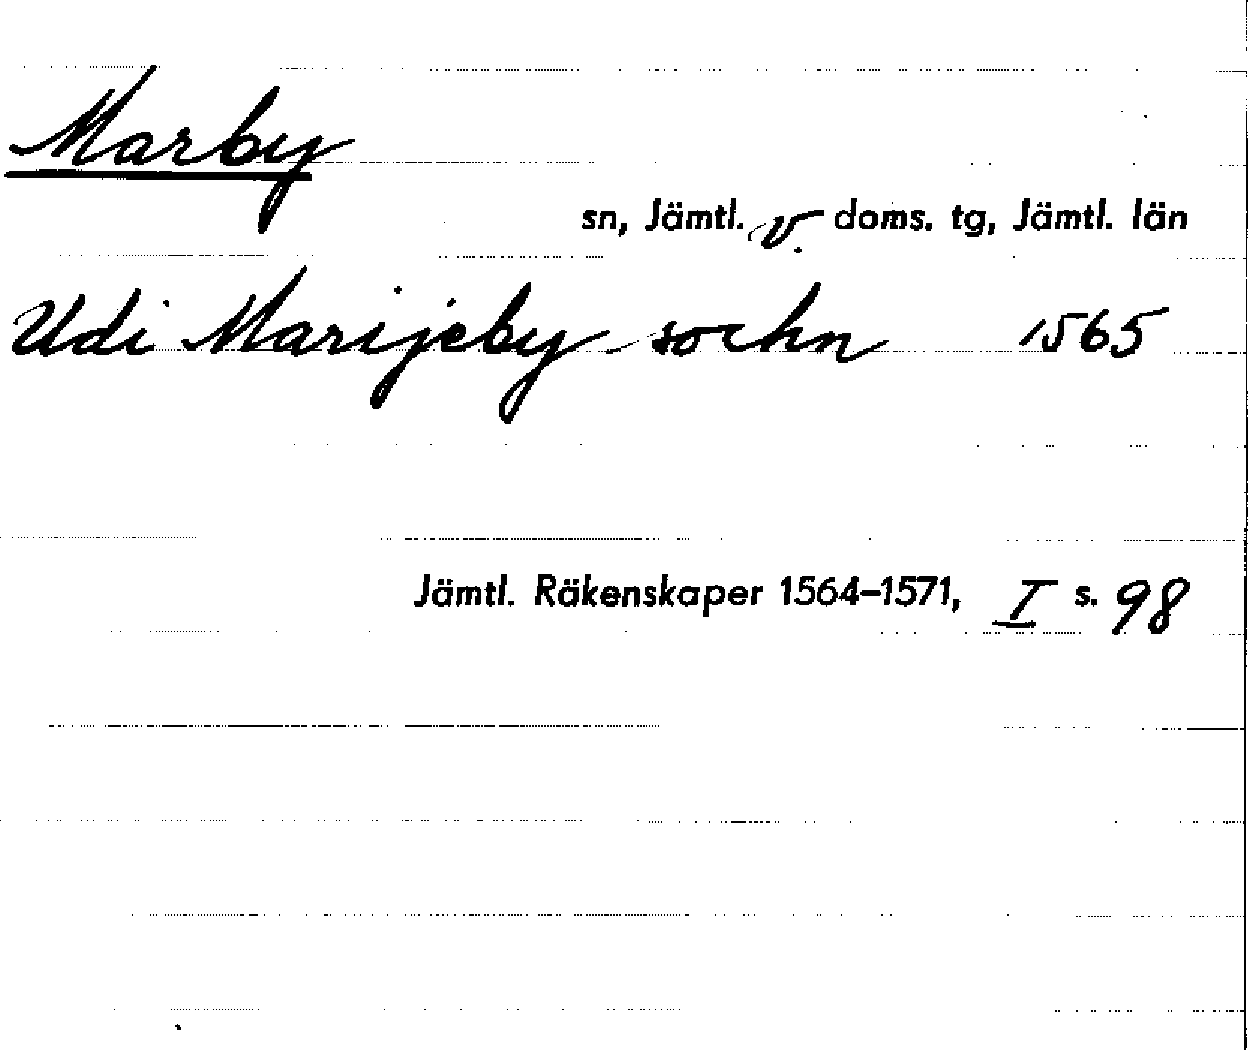 Marby
sn, Jämtl. v. doms. tg, Jämtl. län
Udi Marijeby sochn 1565
Jämtl. Räkenskaper 1564–1571, I s. 98